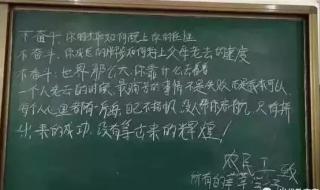 不奋斗，你的才华如何配上你的任性
不奋斗，你成长的脚步如何赶上父母老去的速度
不奋斗，世界那么大，你靠什么去看看
一个人老去的时候，最痛苦的事情不是失败，而是我本可以
每个人心里都有一片海，自己不扬帆，没人帮你启航，只有拼
出来的成功，没有等出来的辉煌！
农民工